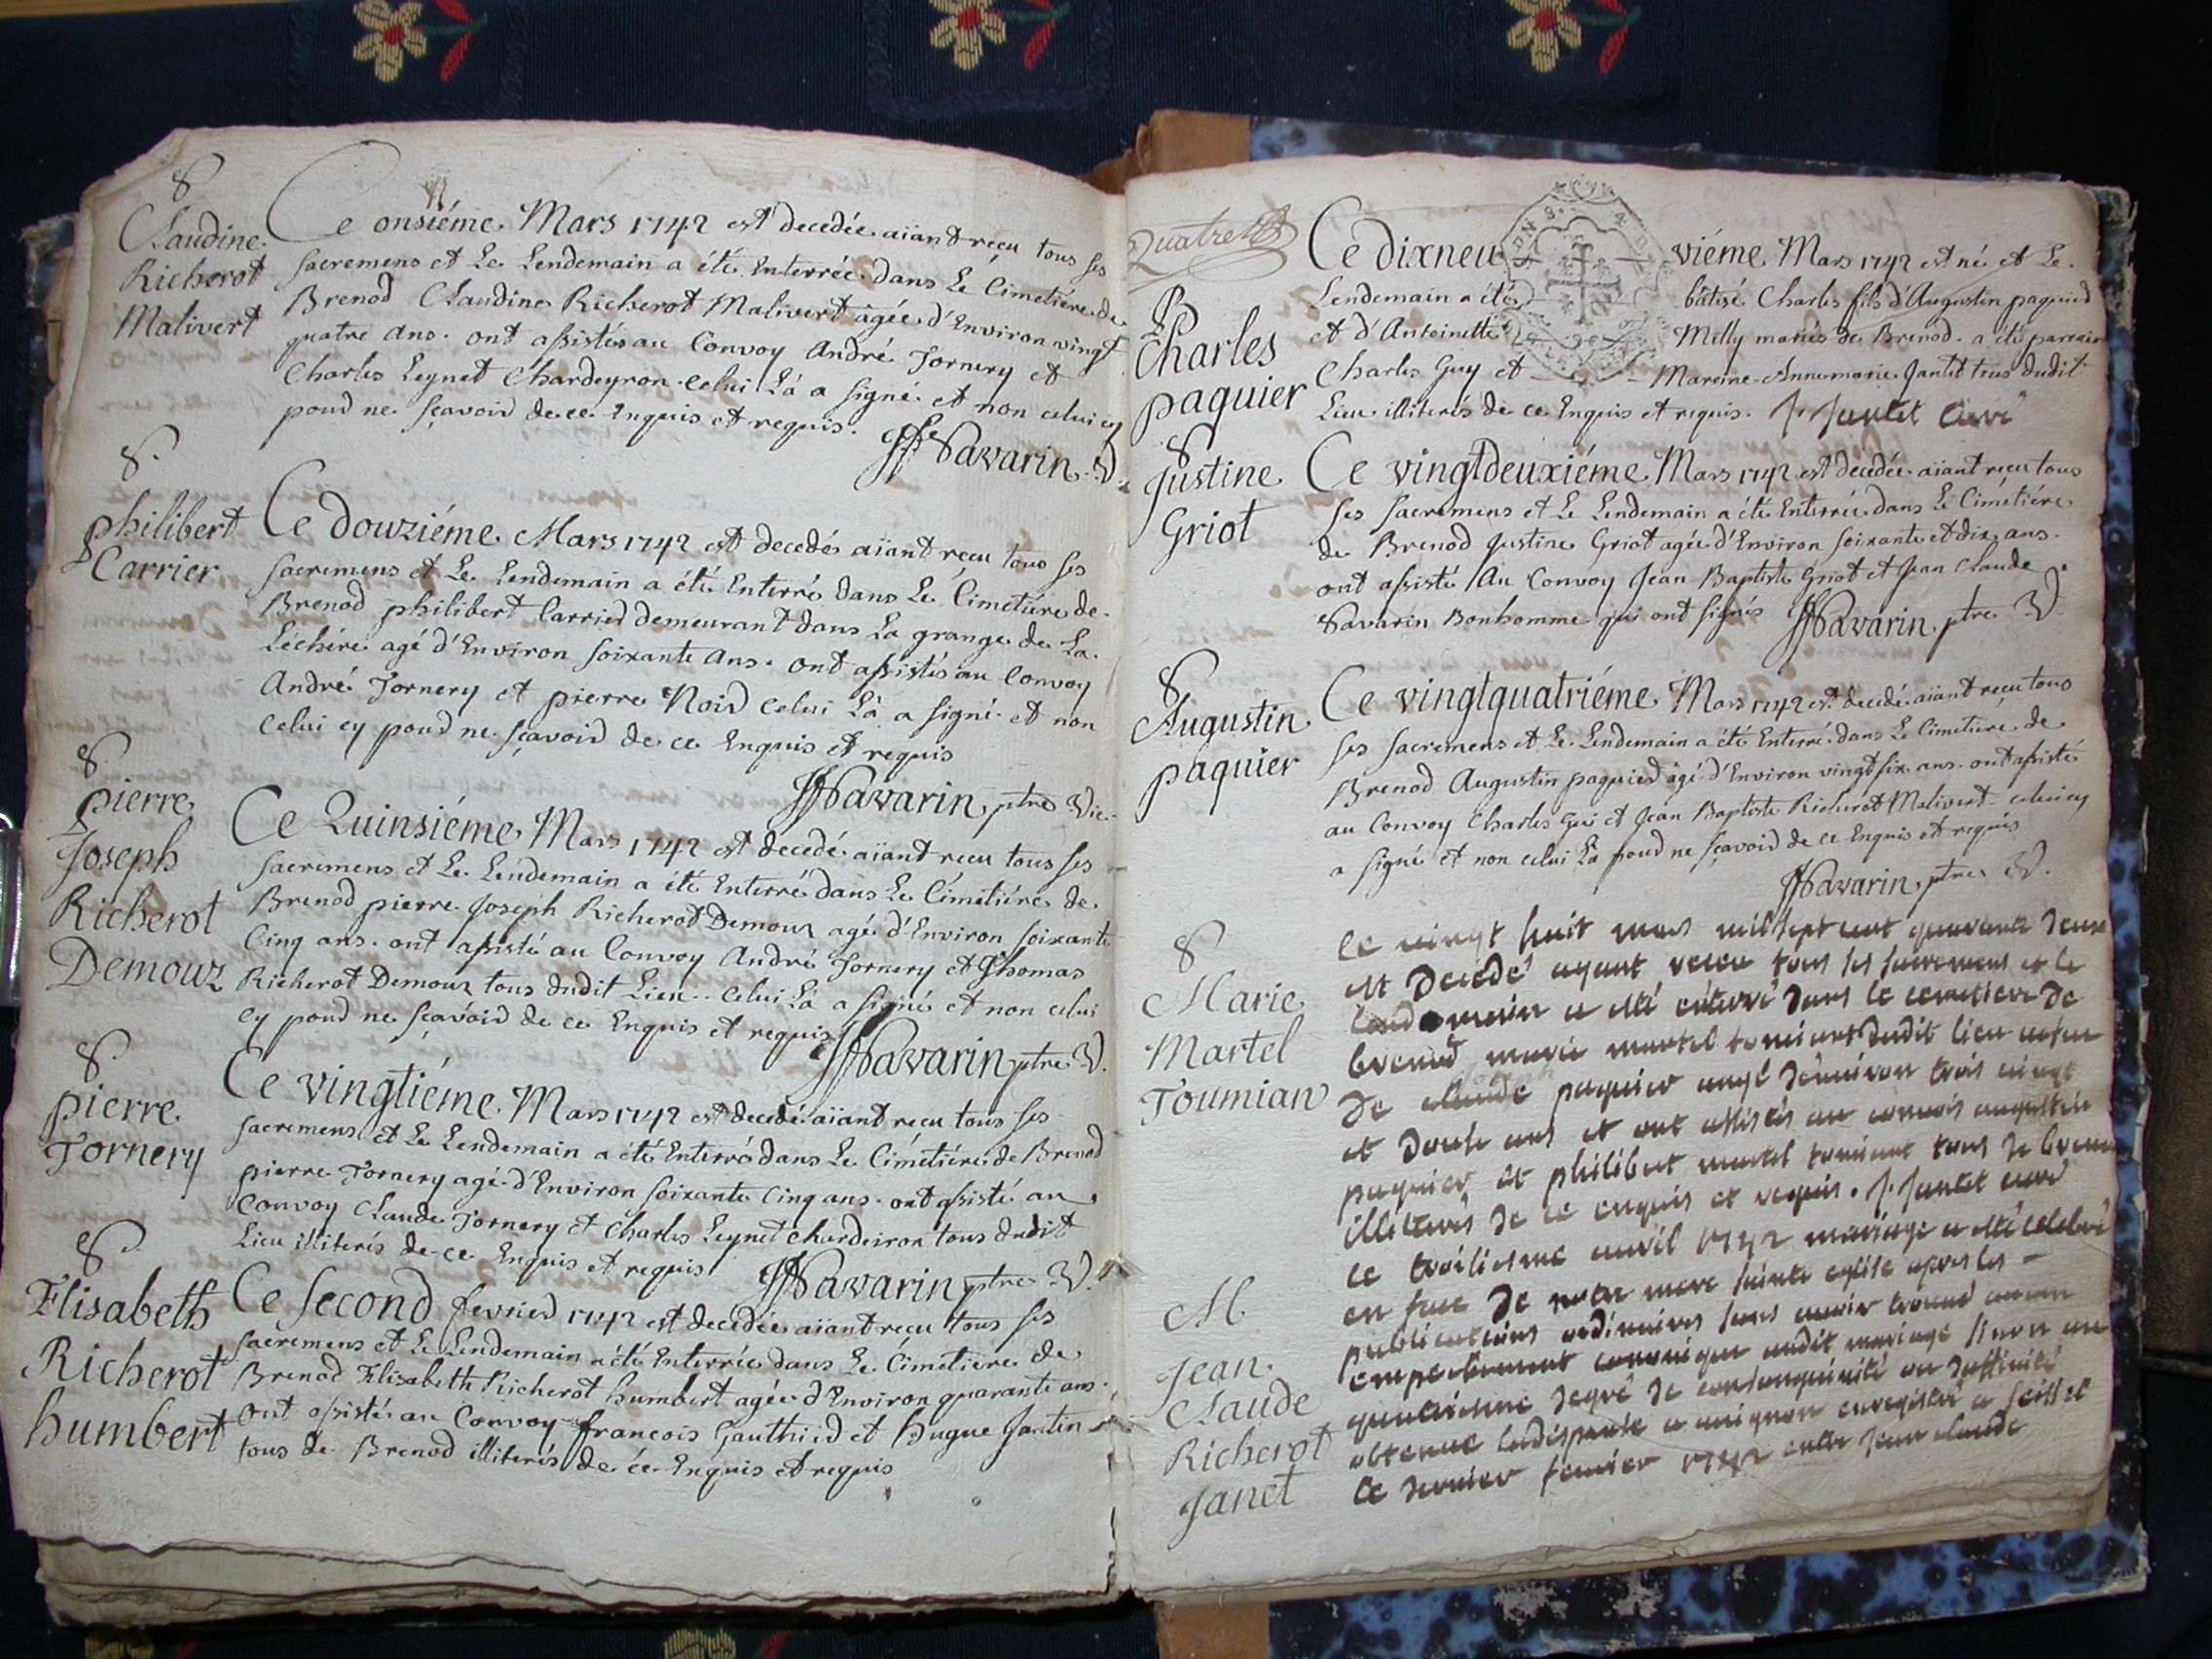 8
Claudine
Richerot
Malivert
Ce onsiéme Mars 1742 est decedée aïant reçu tous ses
sacremens et Le Lendemain a été Enterrée dans Le Cimetiére de
Brenod Claudine Richerot Malivert agée d'Environ vingt
quatre ans. ont assistés au Convoy André Tornery et
Charles Leynet Chardeyron. Celui Là a signé et non celui cy
pour ne sçavoir de ce Enquis et requis.
Savarin V.
8.
philibert
Carrier
Ce douziéme Mars 1742 est decedés aïant reçu tous ses
sacremens et Le Lendemain a été Enterré dans Le Cimetiére de
Brenod philibert Carrier demeurant dans La grange de La
Lechére agé d'Environ soixante ans. ont assistés au Convoy
André Tornery et pierre Noir Celui Là a signé et non
Celui cy pour ne sçavoir de ce Enquis et requis
Savarin ptre Vic.
8.
pierre
Joseph
Richerot
Demour
Ce Quinsiéme Mars 1742 est decedé aïant reçu tous ses
sacremens et Le Lendemain a été Enterré dans Le Cimetiére de
Brenod pierre Joseph Richerot Demour agé d'Environ soixante
Cinq ans. ont assisté au Convoy André Tornery et Thomas
Richerot Demour tous dudit Lieu. Celui La a signé et non celui
cy pour ne sçavoir de ce Enquis et requis
Savarin ptre V.
8
pierre
Tornery
Ce vingtiéme Mars 1742 est decedé aïant reçu tous ses
sacremens et Le Lendemain a été Enterré dans Le Cimétiére de Brenod
pierre Tornery agé d'Environ soixante Cinq ans. ont assisté au
Convoy Claude Tornery et Charles Leynet chardeiron tous dudit
Lieu illiterés de ce Enquis et requis
Savarin ptre V.
8.
Elisabeth
Richerot
humbert
Ce second fevrier 1742 est decedée aïant reçu tous ses
sacremens et Le Lendemain a été Enterrée dans Le Cimetiere de
Brenod Elisabeth Richerot humbert agée d'Environ quarante ans.
ont assisté au Convoy francois Gauthier et hugue Jantin
tous de Brenod illiterés de ce Enquis et requis
Quatre
B
Charles
paquier
Ce dixneuviéme Mars 1742 est né et Le
Lendemain a été bâtisé Charles fils d'Augustin paquier
et d'Antoinette Milly mariés de Brenod. a été parrain
Charles Guy et Mareine Annemarie Jantet tous dudit
Lieu illiterés de ce Enquis et requis. J. Jantet Curé
8
Justine
Griot
Ce vingtdeuxiéme Mars 1742 est decedée aïant reçu tous
ses sacremens et Le Lendemain a été Enterrée dans Le Cimétiére
de Brenod Justine Griot agée d'Environ soixante et dix ans.
ont assisté Au Convoy Jean Baptiste Griot et Jean Claude
Savarin Bonhomme qui ont signés Savarin ptre V.
8
Augustin
paquier
Ce vingtquatriéme Mars 1742 est decedé aïant reçu tous
ses sacremens et Le Lendemain a été Enterré dans Le Cimetiere de
Brenod Augustin paquier agé d'Environ vingt six ans. ont assisté
au Convoy Charles Gui et Jean Baptiste Richerot Malivert celui cy
a signé et non celui La pour ne sçavoir de ce Enquis et requis
Savarin ptre V.
8
Marie
Martel
Toumian
le vingt huit mars mil sept cent quarante deux
est decedé ayant receu tous ses sacremens et le
lendemain a été enterré dans le cemetiere de
brenod marie martel dudit lieu
de claude paquier aagé denviron trois vingt
et douse ans et ont assistés au convois augustin
paquier et philibert martel tous de brenod
illiterés de ce enquis et requis. J. Jantet curé
M.
Jean
Claude
Richerot
Janet
ce troisiesme avril 1742 mariage a été celebré
en face de notre mere sainte eglise apres les
publications ordinaires sans avoir trouvé aucun
empechement canonique audit mariage sinon au
quatriesme degré de consanguinité ou daffinité
obtenue la dispense a avignon enregistré a seissel
le dernier fevrier 1742 entre jean claude